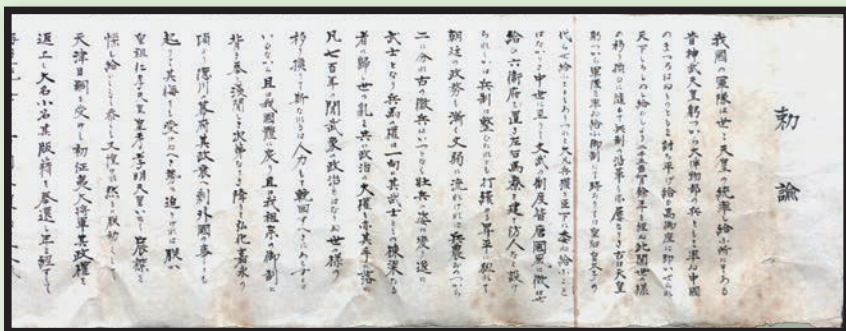 勅諭
我國の軍隊は世々天皇の統率し給ふ所にそある
昔神武天皇躬つから大伴物部の兵ともを率ゐ中國
のまつろはぬものともを討ち平け給ひ高御座に即かせられて
天下しろしめし給ひしより二千五百有餘年を經ぬ此間世の樣
の移り換るに隨ひて兵制の沿革も亦屢なりき古は天皇
躬つから軍隊を率ゐ給ふ御制にて時ありては皇后皇太子の
代らせ給ふこともありつれと大凡兵權を臣下に委ね給ふこと
はなかりき中世に至りて文武の制度皆唐國風に傚はせ
給ひ六衞府を置き左右馬寮を建て防人なと設け
られしかは兵制は整ひたれとも打續ける昇平に狃れて
朝廷の政務も漸文弱に流れけれは兵農おのつから
二に分れ古の徴兵はいつとなく壯兵の姿に變り遂に
武士となり兵馬の權は一向に其武士ともの棟梁たる
者に歸し世の亂と共に政治の大權も亦其手に落ち
凡七百年の間武家の政治とはなりぬ世の樣の
移り換りて斯なれるは人力もて挽回すへきにあらすとは
いひなから且は我國體に戻り且は我祖宗の御制に
背き奉り浅間しき次第なりき降りて弘化嘉永の
頃より徳川の幕府其政衰へ剩外國の事とも
起りて其侮をも受けぬへき勢に迫りけれは朕か
皇祖仁孝天皇皇考孝明天皇いたく宸襟を
惱し給ひしこそ忝くも又惶けれ然るに朕幼くして
天津日嗣を受けし初征夷大將軍其政權を
返上し大名小名其版籍を奉還し年を經すして